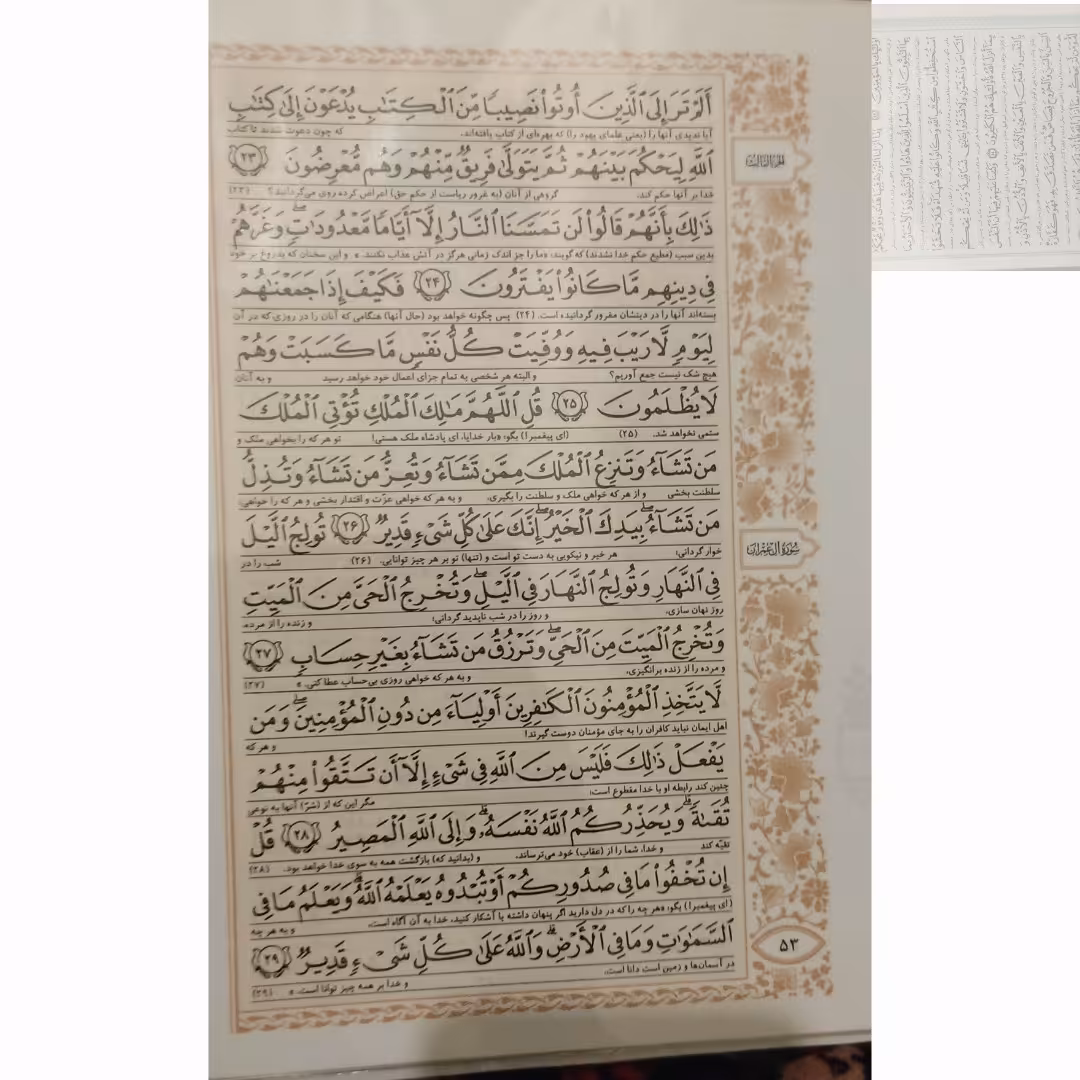 أَلَمْ تَرَ إِلَى ٱلَّذِينَ أُوتُوا۟ نَصِيبًا مِّنَ ٱلْكِتَٰبِ يُدْعَوْنَ إِلَىٰ كِتَٰبِ
آیا ندیدی آنها را (یعنی علمای یهود را) که بهره‌ای از کتاب یافته‌اند، که چون دعوت شدند تا کتاب
الجزء الثالث
ٱللَّهِ لِيَحْكُمَ بَيْنَهُمْ ثُمَّ يَتَوَلَّىٰ فَرِيقٌ مِّنْهُمْ وَهُم مُّعْرِضُونَ ٢٣
خدا بر آنها حکم کند، گروهی از آنان (به غرور ریاست از حکم حق) اعراض کرده روی می‌گردانند؟ (۲۳)
ذَٰلِكَ بِأَنَّهُمْ قَالُوا۟ لَن تَمَسَّنَا ٱلنَّارُ إِلَّآ أَيَّامًا مَّعْدُودَٰتٍ ۖ وَغَرَّهُمْ
بدین سبب (مطیع حکم خدا نشدند) که گویند: «ما را جز اندک زمانی هرگز در آتش عذاب نکنند.» و این سخنان که به دروغ بر خود
فِى دِينِهِم مَّا كَانُوا۟ يَفْتَرُونَ ٢٤ فَكَيْفَ إِذَا جَمَعْنَٰهُمْ
بسته‌اند آنها را در دینشان مغرور گردانیده است. (۲۴) پس چگونه خواهد بود (حال آنها) هنگامی که آنان را در روزی که در آن
لِيَوْمٍ لَّا رَيْبَ فِيهِ وَوُفِّيَتْ كُلُّ نَفْسٍ مَّا كَسَبَتْ وَهُمْ
هیچ شک نیست جمع آوریم؟ و البته هر شخصی به تمام جزای اعمال خود خواهد رسید و به آنان
لَا يُظْلَمُونَ ٢٥ قُلِ ٱللَّهُمَّ مَٰلِكَ ٱلْمُلْكِ تُؤْتِى ٱلْمُلْكَ
ستمی نخواهد شد. (۲۵) (ای پیغمبر!) بگو: «بار خدایا، ای پادشاه ملک هستی! تو هر که را بخواهی ملک و
مَن تَشَآءُ وَتَنزِعُ ٱلْمُلْكَ مِمَّن تَشَآءُ وَتُعِزُّ مَن تَشَآءُ وَتُذِلُّ
سلطنت بخشی و از هر که خواهی ملک و سلطنت را بگیری، و به هر که خواهی عزّت و اقتدار بخشی و هر که را خواهی
مَن تَشَآءُ ۖ بِيَدِكَ ٱلْخَيْرُ ۖ إِنَّكَ عَلَىٰ كُلِّ شَىْءٍ قَدِيرٌ ٢٦ تُولِجُ ٱلَّيْلَ
خوار گردانی؛ هر خیر و نیکویی به دست تو است و (تنها) تو بر هر چیز توانایی. (۲۶) شب را در
سورة آل عمران
فِى ٱلنَّهَارِ وَتُولِجُ ٱلنَّهَارَ فِى ٱلَّيْلِ ۖ وَتُخْرِجُ ٱلْحَىَّ مِنَ ٱلْمَيِّتِ
روز نهان سازی، و روز را در شب ناپدید گردانی؛ و زنده را از مرده،
وَتُخْرِجُ ٱلْمَيِّتَ مِنَ ٱلْحَىِّ ۖ وَتَرْزُقُ مَن تَشَآءُ بِغَيْرِ حِسَابٍ ٢٧
و مرده را از زنده برانگیزی، و به هر که خواهی روزی بی‌حساب عطا کنی.» (۲۷)
لَّا يَتَّخِذِ ٱلْمُؤْمِنُونَ ٱلْكَٰفِرِينَ أَوْلِيَآءَ مِن دُونِ ٱلْمُؤْمِنِينَ ۖ وَمَن
اهل ایمان نباید کافران را به جای مؤمنان دوست گیرند! و هر که
يَفْعَلْ ذَٰلِكَ فَلَيْسَ مِنَ ٱللَّهِ فِى شَىْءٍ إِلَّآ أَن تَتَّقُوا۟ مِنْهُمْ
چنین کند رابطه او با خدا مقطوع است؛ مگر این که از (شرّ) آنها به نوعی
تُقَىٰةً ۗ وَيُحَذِّرُكُمُ ٱللَّهُ نَفْسَهُۥ ۗ وَإِلَى ٱللَّهِ ٱلْمَصِيرُ ٢٨ قُلْ
تقیّه کند و خدا، شما را از (عقاب) خود می‌ترساند، و (بدانید که) بازگشت همه به سوی خدا خواهد بود. (۲۸)
إِن تُخْفُوا۟ مَا فِى صُدُورِكُمْ أَوْ تُبْدُوهُ يَعْلَمْهُ ٱللَّهُ ۗ وَيَعْلَمُ مَا فِى
(ای پیغمبر!) بگو: «هر چه را که در دل دارید اگر پنهان داشته یا آشکار کنید، خدا به آن آگاه است، و به هر چه
ٱلسَّمَٰوَٰتِ وَمَا فِى ٱلْأَرْضِ ۗ وَٱللَّهُ عَلَىٰ كُلِّ شَىْءٍ قَدِيرٌ ٢٩
در آسمان‌ها و زمین است دانا است، و خدا بر همه چیز توانا است.» (۲۹)
۵۳